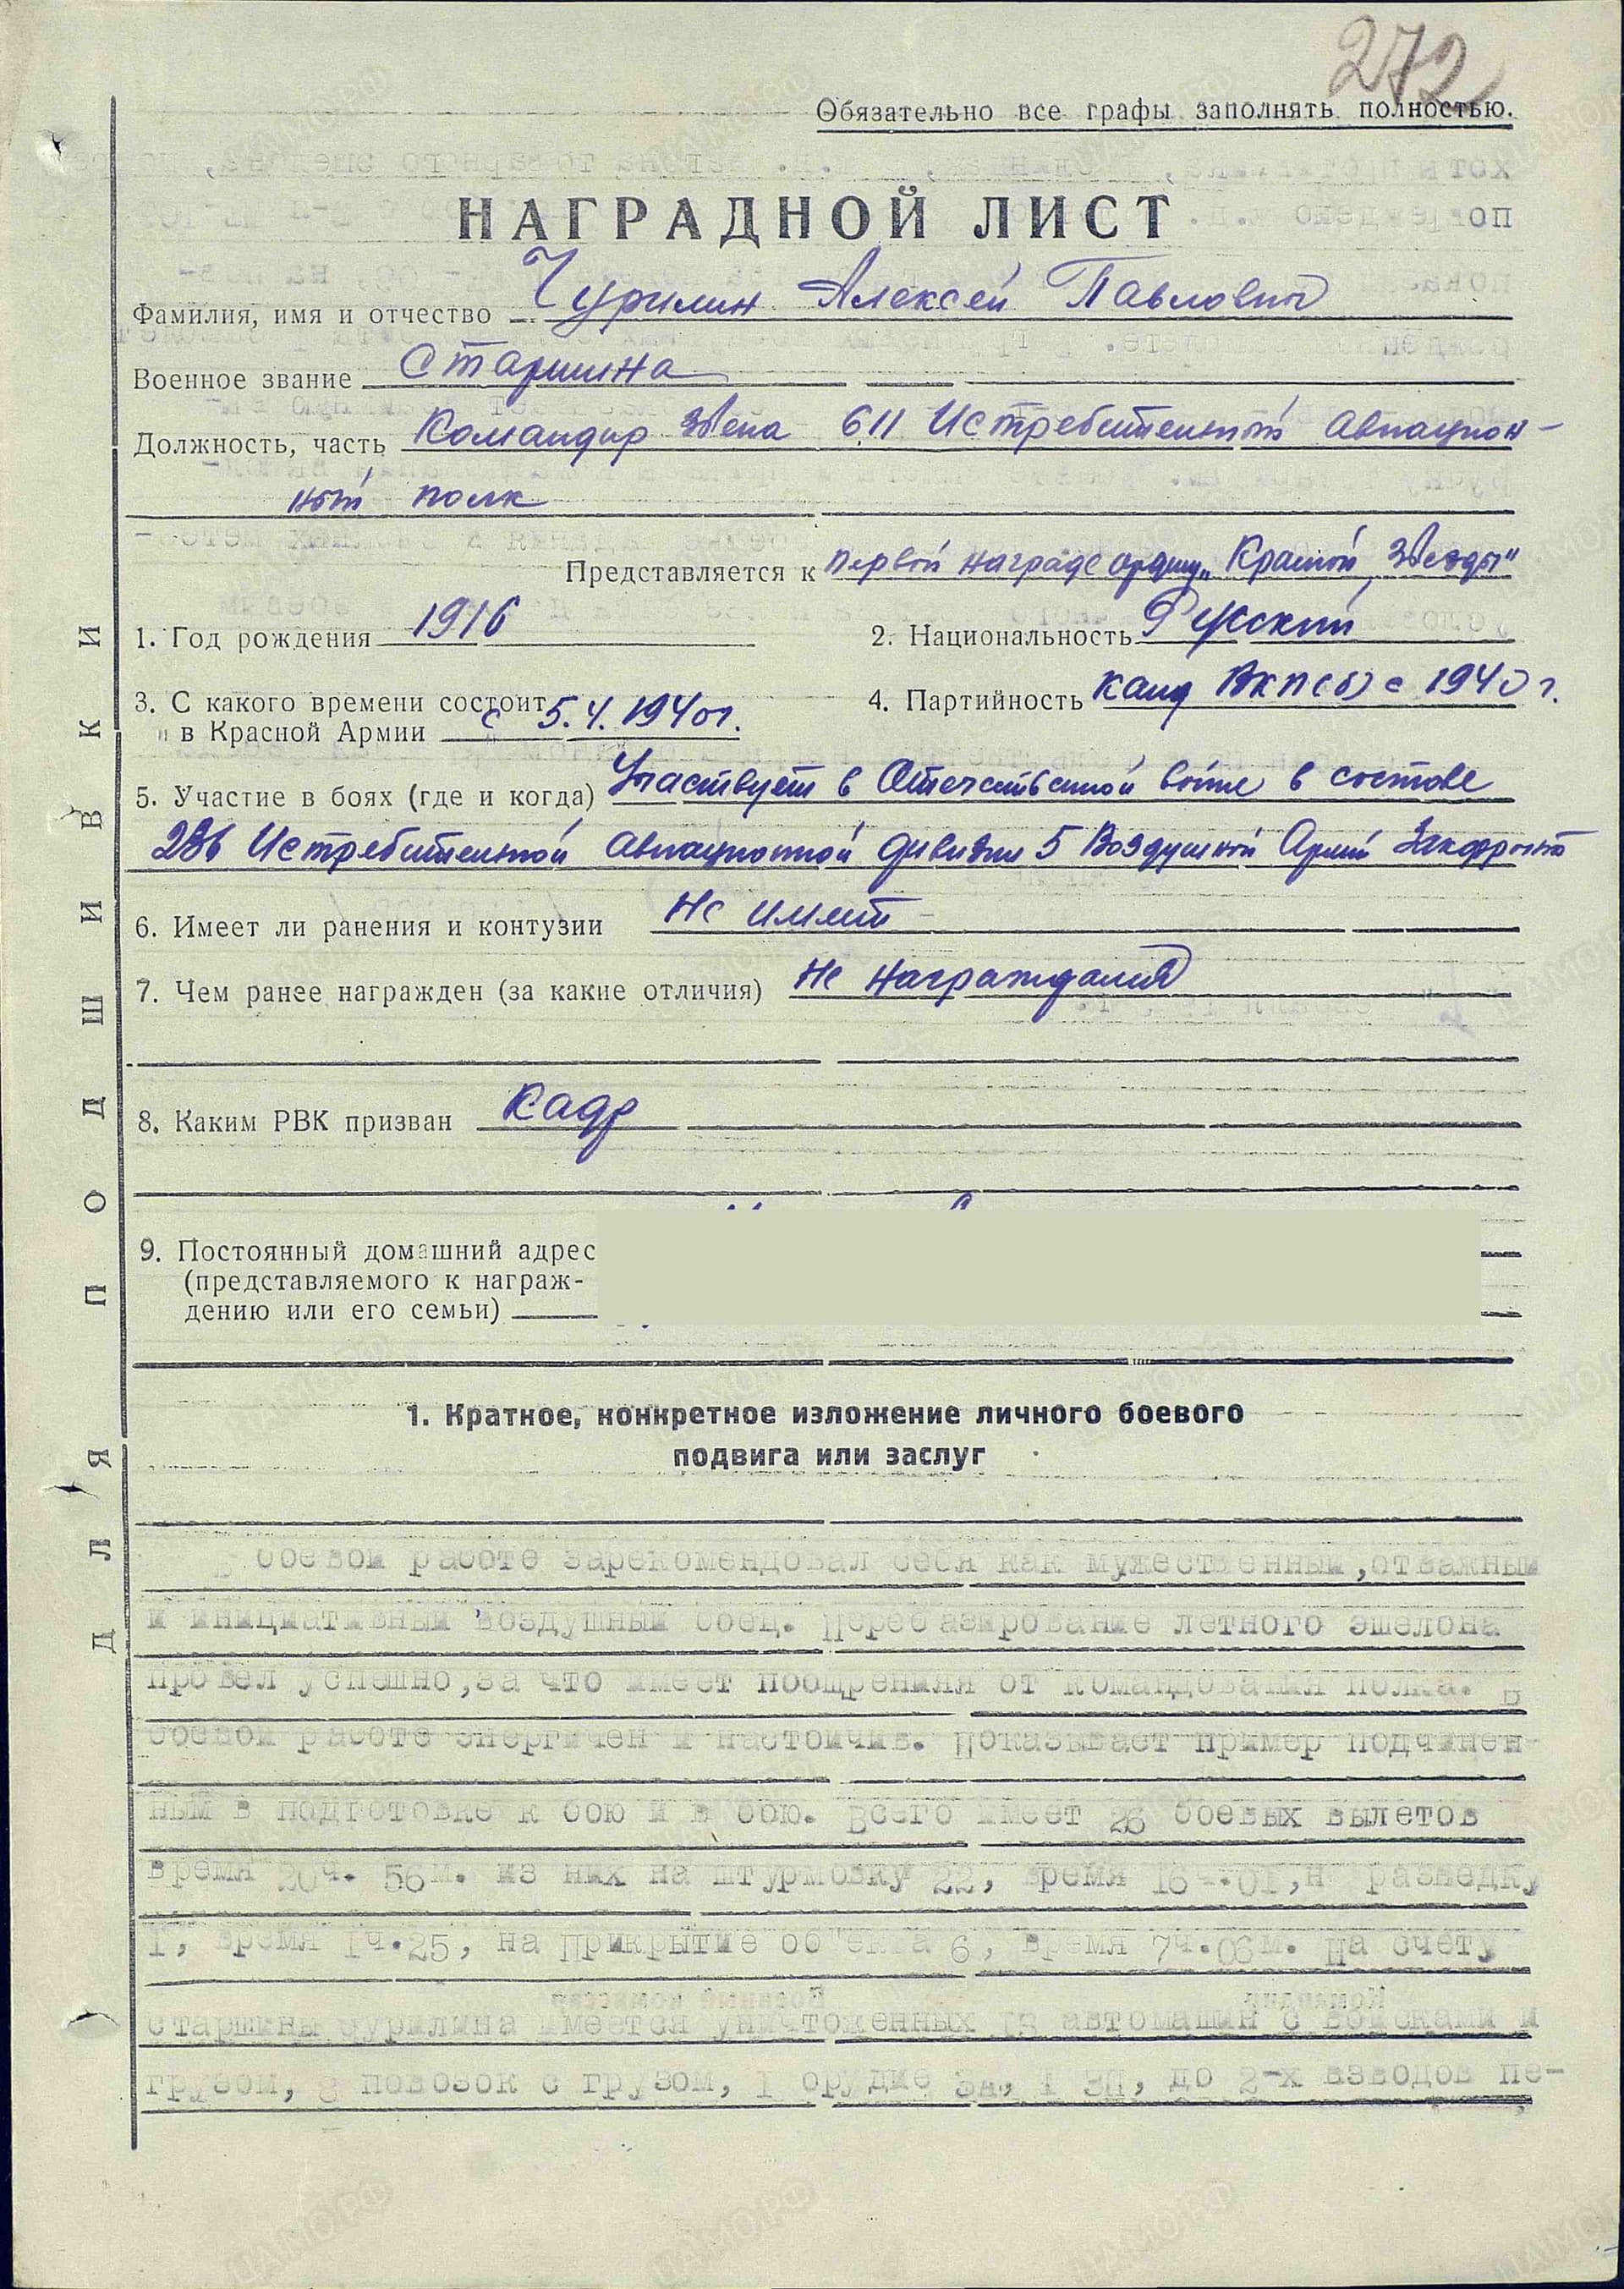 272
Обязательно все графы заполнять полностью.
НАГРАДНОЙ ЛИСТ
Фамилия, имя и отчество Чурилин Алексей Павлович
Военное звание Старшина
Должность, часть Командир звена 611 Истребительный авиацион-
ный полк
Представляется к первой награде ордену „Красной Звезды"
1. Год рождения 1916
2. Национальность Русский
3. С какого времени состоит
в Красной Армии с 5.4.1940г.
4. Партийность канд ВКП(б) с 1940 г.
5. Участие в боях (где и когда) Участвует в Отечественной войне в составе
236 Истребительной авиационной дивизии 5 Воздушной Армии Закфронта
6. Имеет ли ранения и контузии Не имеет
7. Чем ранее награжден (за какие отличия) Не награждался
8. Каким РВК призван Кадр
9. Постоянный домашний адрес
(представляемого к награж-
дению или его семьи)
ДЛЯ ПОДШИВКИ
1. Краткое, конкретное изложение личного боевого
подвига или заслуг
боевой работе зарекомендовал себя как мужественный,отважный
и инициативный воздушный боец. Перебазирование летного эшелона
провел успешно,за что имеет поощрения от командования полка. В
боевой работе энергичен и настойчив. Показывает пример подчинен
ным в подготовке к бою и в бою. Всего имеет 26 боевых вылетов
время 20ч. 56м. из них на штурмовку 22, время 16ч.01,н разведку
I, время Iч.25, на прикрытие об'екта 6, время 7ч.06м. На счету
старшины Чурилина имеется уничтоженных автомашин с войсками и
грузом, 8 повозок с грузом, I орудие ЗА, I ЗП, до 2-х взводов пе-